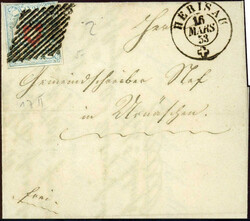 HERISAU
16
MARS
53
Herrn
Gemeindschreiber Nef
in Urnäschen.
frei